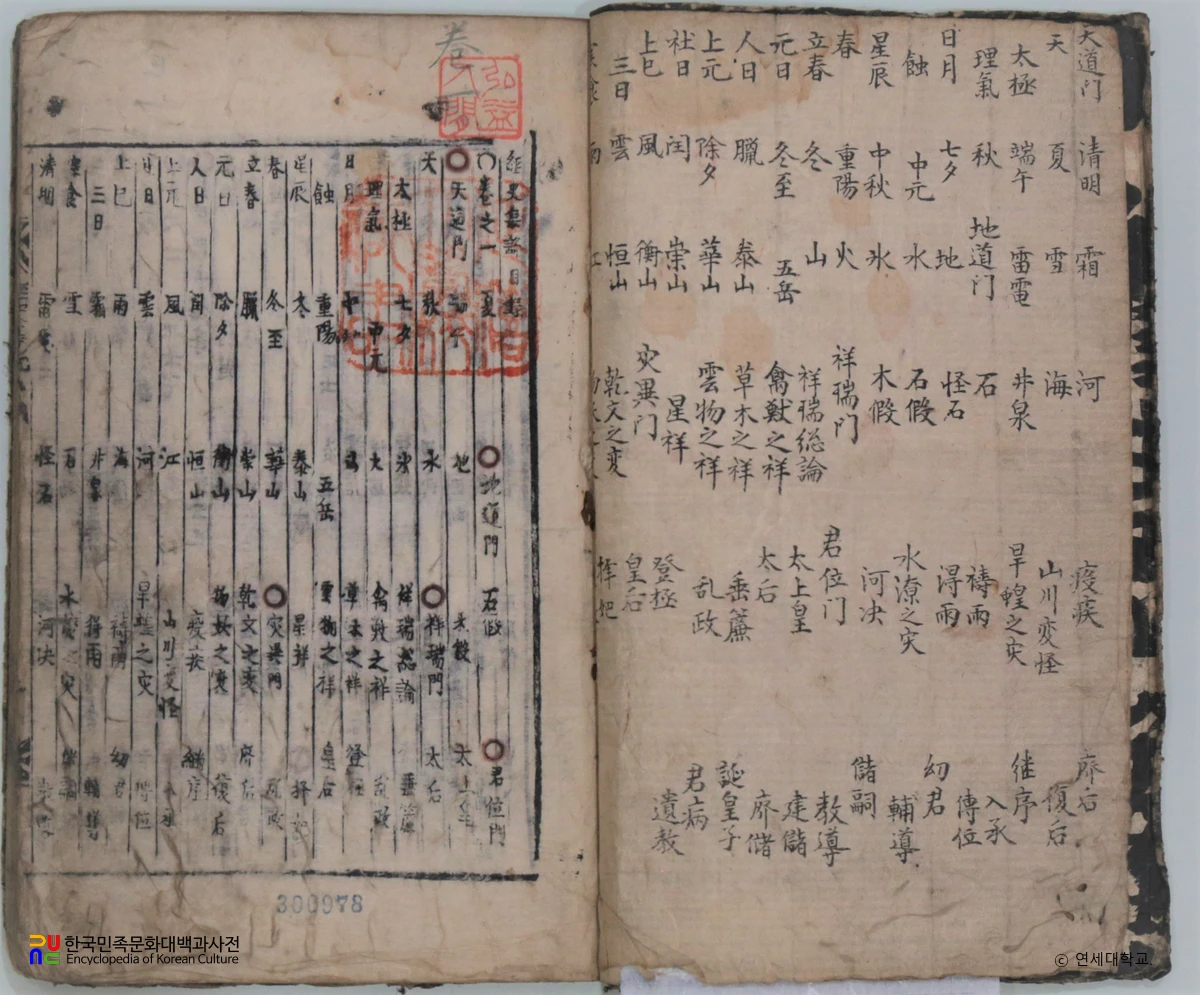 天道门
天
太極
理氣
日月
蝕
星辰
春
立春
元日
人日
上元
社日
上巳
三日
清明
夏
端午
秋
七夕
中元
中秋
重陽
冬
冬至
臘
除夕
閏
風
雲
雨
霜
雪
雷電
地道门
地
水
氷
火
山
五岳
泰山
華山
崇山
衡山
恒山
江
河
海
井泉
石
怪石
石假
木假
祥瑞门
祥瑞総論
禽獸之祥
草木之祥
雲物之祥
星祥
灾異门
乾文之変
疫疾
山川変怪
旱蝗之灾
禱雨
淂雨
水潦之灾
河决
君位门
太上皇
太后
垂簾
乱政
登極
皇后
择妃
廃后
復后
继序
入承
傳位
幼君
輔導
儲嗣
教導
建儲
廃儲
誕皇子
君病
遺教
卷一
卷之一
天道門
天
太極
理氣
日月
蝕
星辰
春
立春
元日
人日
上元
社日
上巳
三日
寒食
清明
夏
端午
秋
七夕
中元
中秋
重陽
冬
冬至
臘
除夕
閏
風
雲
雨
霜
雪
雷電
地道門
地
水
氷
火
山
五岳
泰山
華山
崇山
衡山
恒山
江
河
海
井泉
石
怪石
石假
木假
祥瑞門
祥瑞総論
禽獸之祥
草木之祥
雲物之祥
星祥
灾異門
乾文之変
物妖之変
疫疾
山川変怪
旱蝗之灾
禱雨
淂雨
水潦之灾
河决
君位門
太上皇
太后
垂簾
乱政
登極
皇后
择妃
廃后
復后
継序
傳位
幼君
輔導
300978
한국민족문화대백과사전
Encyclopedia of Korean Culture
© 연세대학교